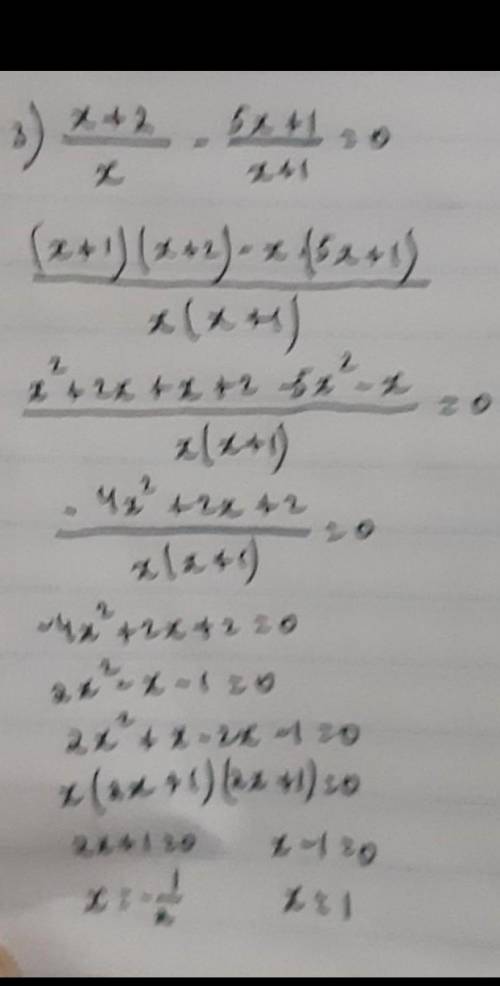 3) (x+2)/x - (5x+1)/(x+1) = 0
((x+1)(x+2) - x·(5x+1))/(x(x+1))
(x²+2x+x+2-5x²-x)/(x(x+1)) = 0
(-4x²+2x+2)/(x(x+1)) = 0
-4x²+2x+2=0
2x²-x-1=0
2x²+x-2x-1=0
x(2x+1)(2x+1)=0
2x+1=0 x-1=0
x=-1/2 x=1